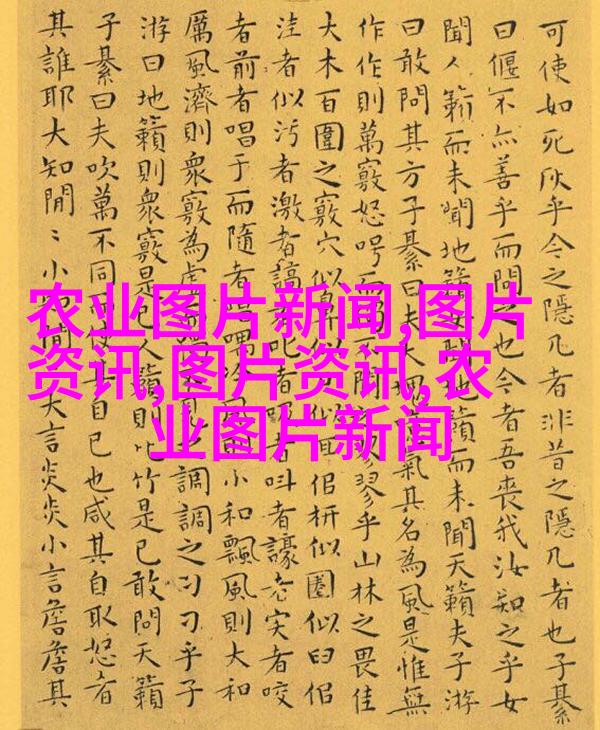 可使如死灰乎今之隱几者非昔之隱几者也子綦
曰偃不亦善乎而問之也今者吾喪我汝知之乎女
聞人籟而未聞地籟女聞地籟而未聞天籟夫子游
曰敢問其方子綦曰夫大塊噫氣其名為風是惟無
作作則萬竅怒呺而不聞之翏乎山林之畏佳
大木百圍之竅穴似鼻似似枅似圈似臼似
洼者似污者激者謞叱者者叫者譹者实者咬
者前者唱于而隨者唱風則小和飄風則大和
厲風濟則衆竅為虛調調之刁刁乎子
游曰地籟則衆竅是已人籟則比竹是已敢問天籟
子綦曰夫吹萬不同而使其自已也咸其自取怒者
其誰耶大知閒〻小知閒大言炎炎小言詹詹其
农业图片新闻,图片
资讯,图片资讯,农
业图片新闻